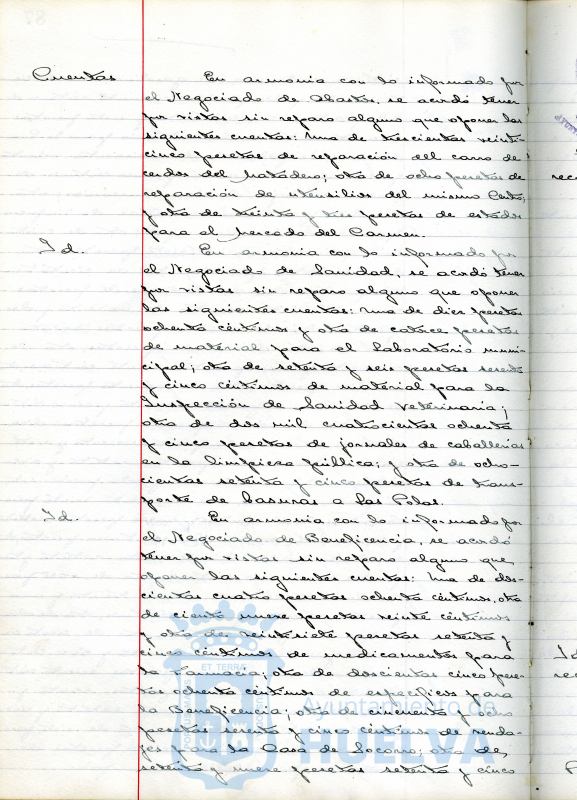 Cuentas En armonia con lo informado por
el Negociado de Abastos, se acordó tener
por vistas sin reparo alguno que oponer las
siguientes cuentas: Una de trescientas veinti-
cinco pesetas de reparación del carro de
cerdos del Matadero; otra de ocho pesetas de
reparación de utensilios del mismo Centro;
y otra de treinta y tres pesetas de
para el Mercado del Carmen.
Id. En armonia con lo informado por
el Negociado de Sanidad, se acordó tener
por vistas sin reparo alguno que oponer
las siguientes cuentas: Una de diez pesetas
ochenta céntimos y otra de catorce pesetas
de material para el Laboratorio muni-
cipal; otra de setenta y seis pesetas sesenta
y cinco céntimos de material para la
Inspección de Sanidad Veterinaria;
otra de dos mil cuatrocientas ochenta
y cinco pesetas de jornales de caballerías
en la limpieza pública; y otra de ocho-
cientas setenta y cinco pesetas de trans-
porte de basuras a las Polas.
Id. En armonia con lo informado por
el Negociado de Beneficencia, se acordó
tener por vistas sin reparo alguno que
oponer las siguientes cuentas: Una de dos-
cientas cuatro pesetas ochenta céntimos, otra
de ciento nueve pesetas veinte céntimos
y otra de veintisiete pesetas setenta y
cinco céntimos de medicamentos para
la Farmacia; otra de doscientas cinco pese-
tas ochenta céntimos de específicos para
la Beneficencia; otra de cincuenta y ocho
pesetas sesenta y cinco céntimos de venda-
jes para la Casa de Socorro; otra de
setenta y nueve pesetas setenta y cinco
ET TERRÆ
Ayuntamiento de
HUELVA